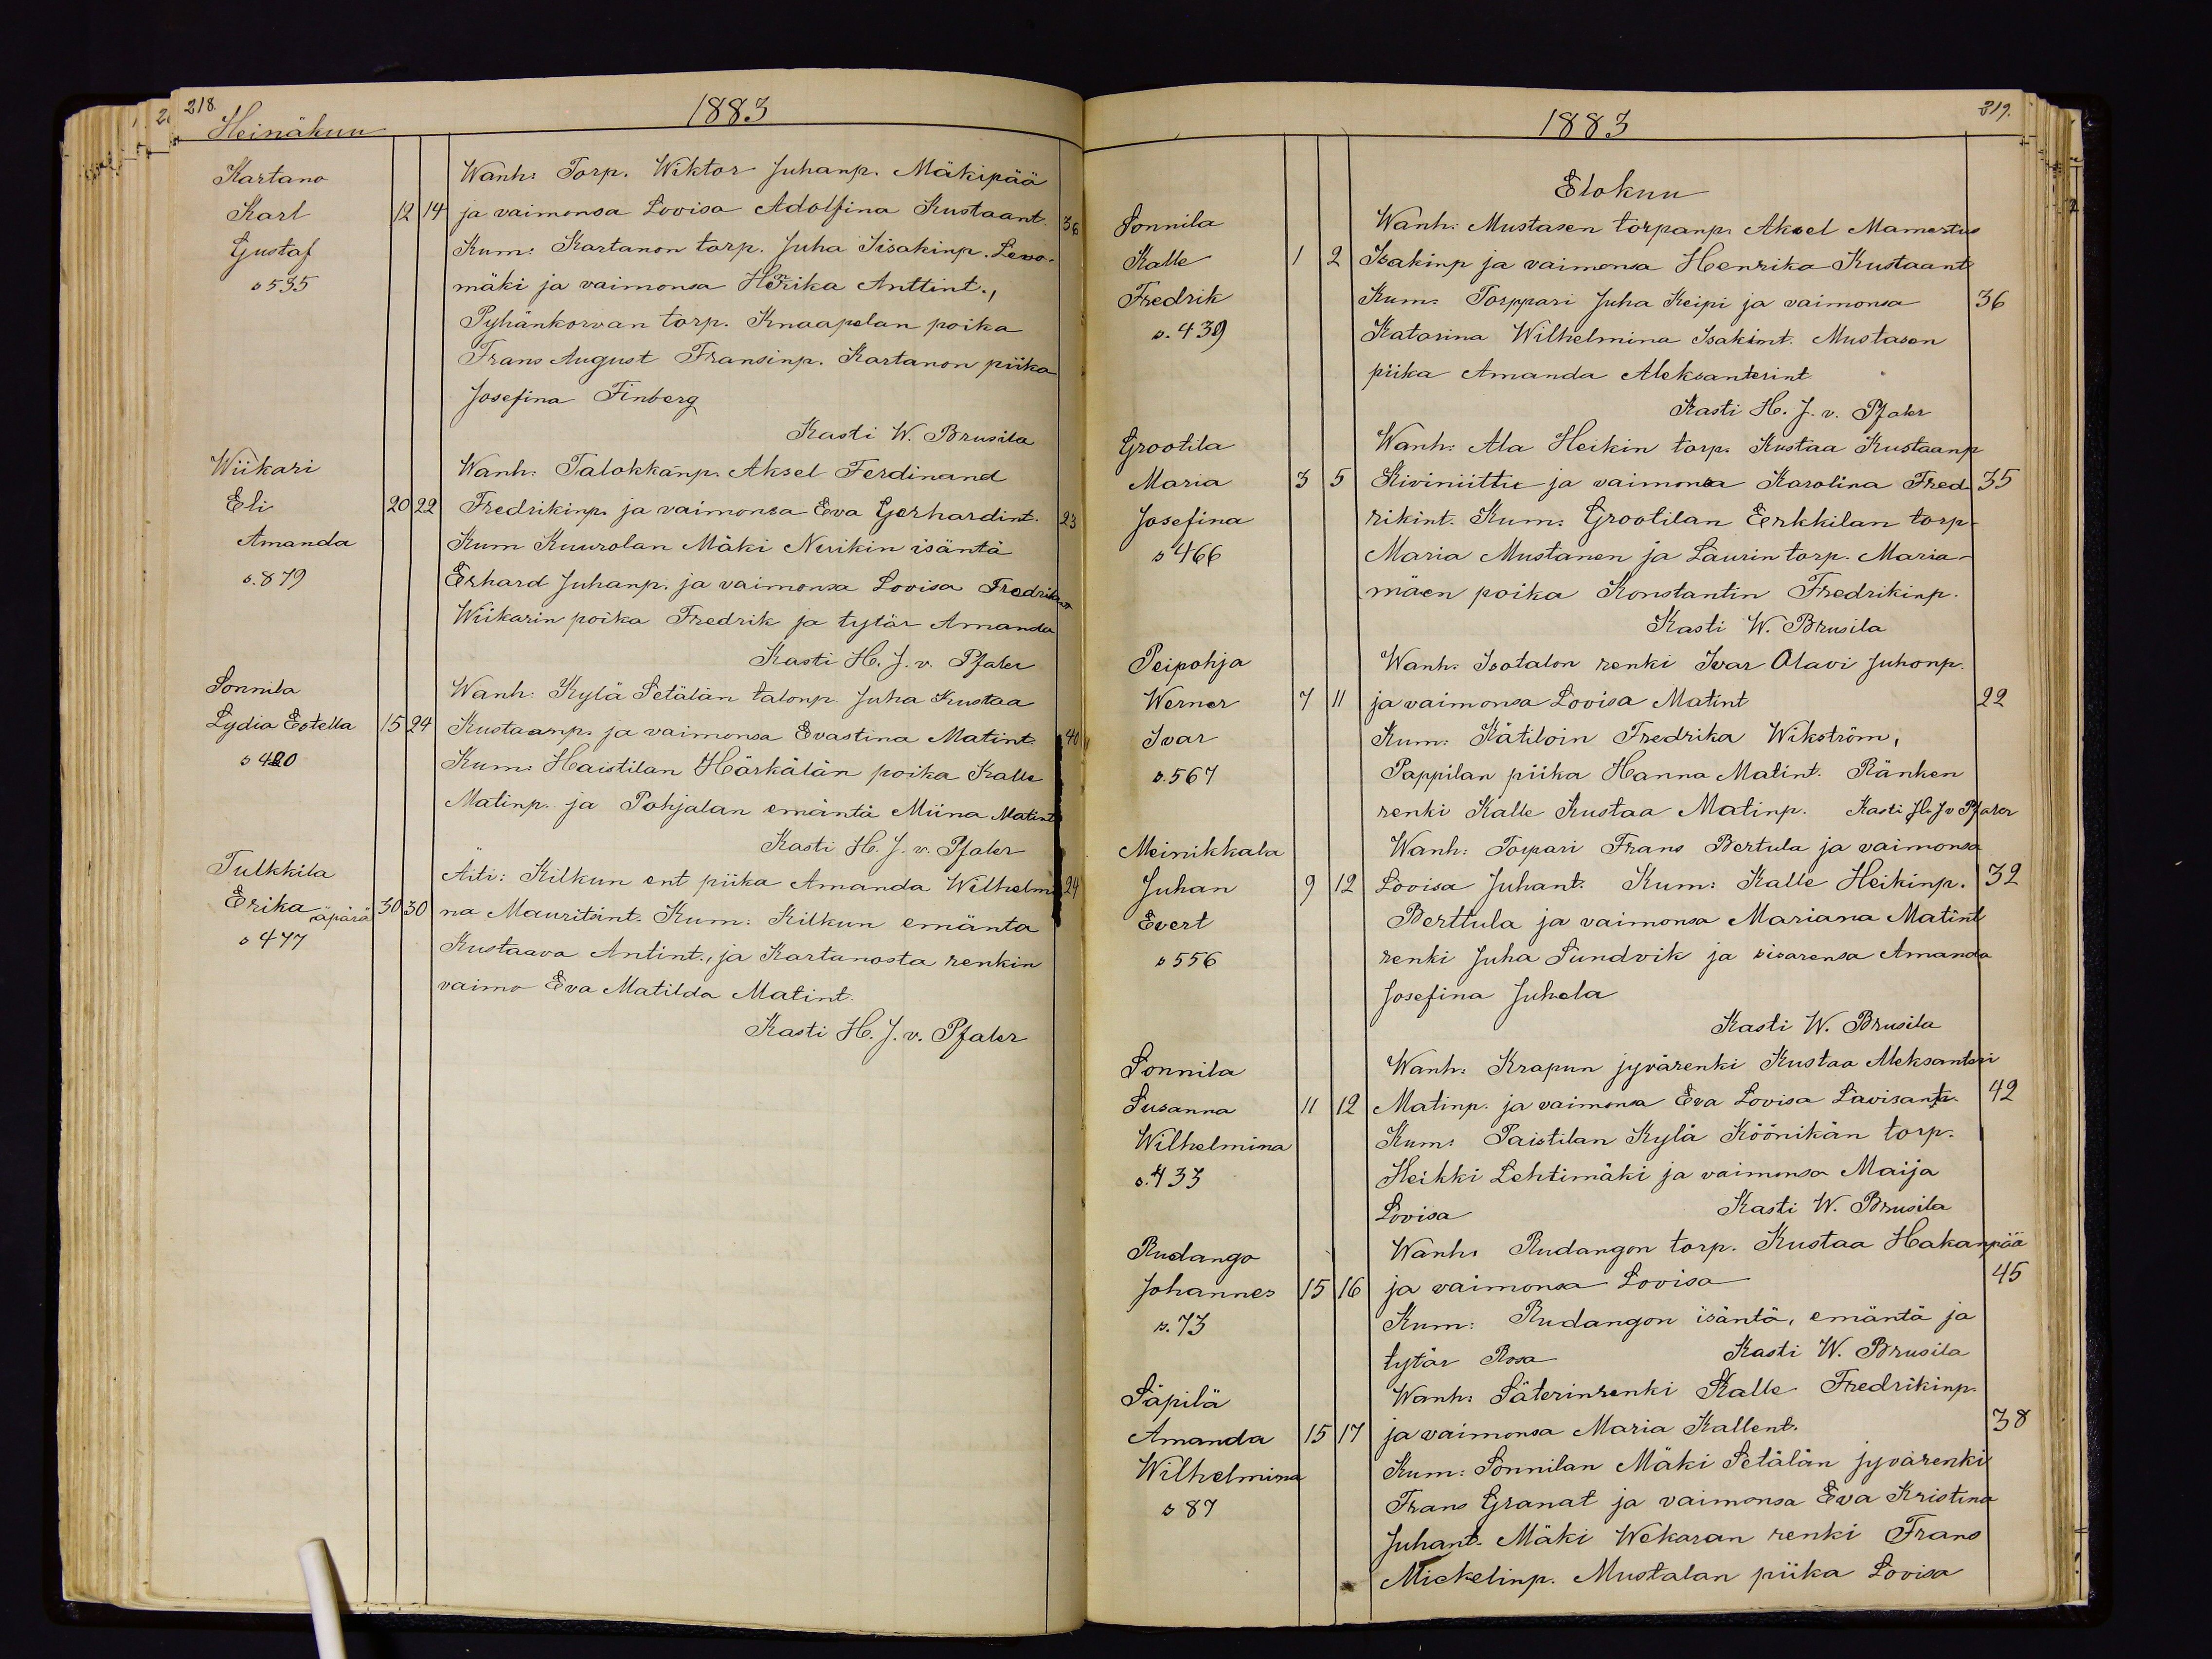 218.
1883
Heinäkuu
Kartano Wanh: Torp. Wiktor Juhanp. Mäkipää
Karl 12 14 ja vaimonsa Lovisa Adolfina Kustaant. 36
Gustaf Kum: Kartanon torp. Juha Iisakinp. Levo-
s 535 mäki ja vaimonsa Henrika Anttint.,
Pyhänkorvan torp. Knaapelan poika
Frans August Fransinp. Kartanon piika
Josefina Finberg
Kasti W. Brusila
Wiikari Wanh: Talokkanp. Aksel Ferdinand
Eli 20 22 Fredrikinp. ja vaimonsa Eva Gerhardint. 23
Amanda Kum Kuurolan Mäki Nuikin isäntä
s. 879 Erhard Juhanp. ja vaimonsa Lovisa Fredrikint
Wiikarin poika Fredrik ja tytär Amanda
Kasti H. J. v. Pfaler
Sonnila Wanh: Kylä Setälän talonp. Juha Kustaa
Lydia Estella 15 24 Kustaanp. ja vaimonsa Evastina Matint. 40
s 420 Kum: Haistilan Härkälän poika Kalle
Matinp. ja Pohjalan emäntä Miina Matint
Kasti H. J. v. Pfaler
Tulkkila Äiti: Kilkun ent piika Amanda Wilhelmi 24
Erika äpärä 30 30 na Mauritsint. Kum: Kilkun emäntä
s 477 Kustaava Antint., ja Kartanosta renkin
vaimo Eva Matilda Matint.
Kasti H. J. v. Pfaler
219.
1883
Elokuu
Sonnila Wanh: Mustasen torpanp. Aksel Mamertus
Kalle 1 2 Isakinp ja vaimonsa Henrika Kustaant
Fredrik Kum: Torppari Juha Keipi ja vaimonsa 36
s. 439 Katarina Wilhelmina Isakint. Mustasen
piika Amanda Aleksanterint
Kasti H. J. v. Pfaler
Grootila Wanh: Ala Heikin torp. Kustaa Kustaanp
Maria 3 5 Kiviniittu ja vaimonsa Karolina Fred 35
Josefina rikint. Kum: Grootilan Eerkkilan torp-
s 466 Maria Mustanen ja Laurin torp. Maria-
mäen poika Konstantin Fredrikinp.
Kasti W. Brusila
Peipohja Wanh: Isotalon renki Ivar Olavi Juhonp.
Werner 7 11 ja vaimonsa Lovisa Matint 22
Ivar Kum: Kätilöin Fredrika Wikström,
s. 567 Pappilan piika Hanna Matint. Ränken
renki Kalle Kustaa Matinp. Kasti H. J v Pfaler
Meinikkala Wanh: Torpari Frans Bertula ja vaimonsa
Juhan 9 12 Lovisa Juhant. Kum: Kalle Heikinp. 32
Evert Berttula ja vaimonsa Mariana Matint
s 556 renki Juha Sundvik ja sisarensa Amanda
Josefina Juhela
Kasti W. Brusila
Sonnila Wanh: Krapun jyvärenki Kustaa Aleksanteri
Susanna 11 12 Matinp. ja vaimonsa Eva Lovisa Lavisant. 42
Wilhelmina Kum: Paistilan Kylä Köönikän torp.
s. 433 Heikki Lehtimäki ja vaimonsa Maija
Lovisa Kasti W. Brusila
Rudango Wanh: Rudangon torp. Kustaa Hakanpää
Johannes 15 16 ja vaimonsa Lovisa 45
s. 73 Kum: Rudangon isäntä, emäntä ja
tytär Rosa Kasti W. Brusila
Säpilä Wanh: Säterinrenki Kalle Fredrikinp.
Amanda 15 17 ja vaimonsa Maria Kallent. 38
Wilhelmina Kum: Sonnilan Mäki Setälän jyvärenki
s 87 Frans Granat ja vaimonsa Eva Kristina
Juhant. Mäki Wekaran renki Frans
Mickelinp. Mustalan piika Lovisa